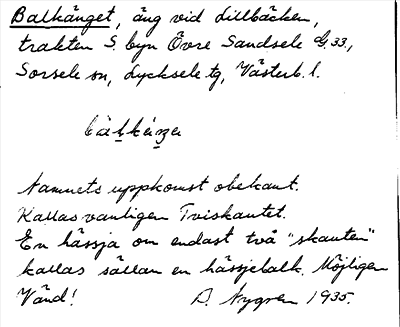 Balkänget, äng vid Lillbäcken,
trakten S. byn Övre Sandsele G. 33,
Sorsele sn, Lycksele tg, Västerb. l.
Namnets uppkomst obekant.
Kallas vanligen Tviskantet.
En hässja om endast två "skanten"
kallas sällan en hässjebalk. Möjligen
Vänd! D. Nygren 1935.